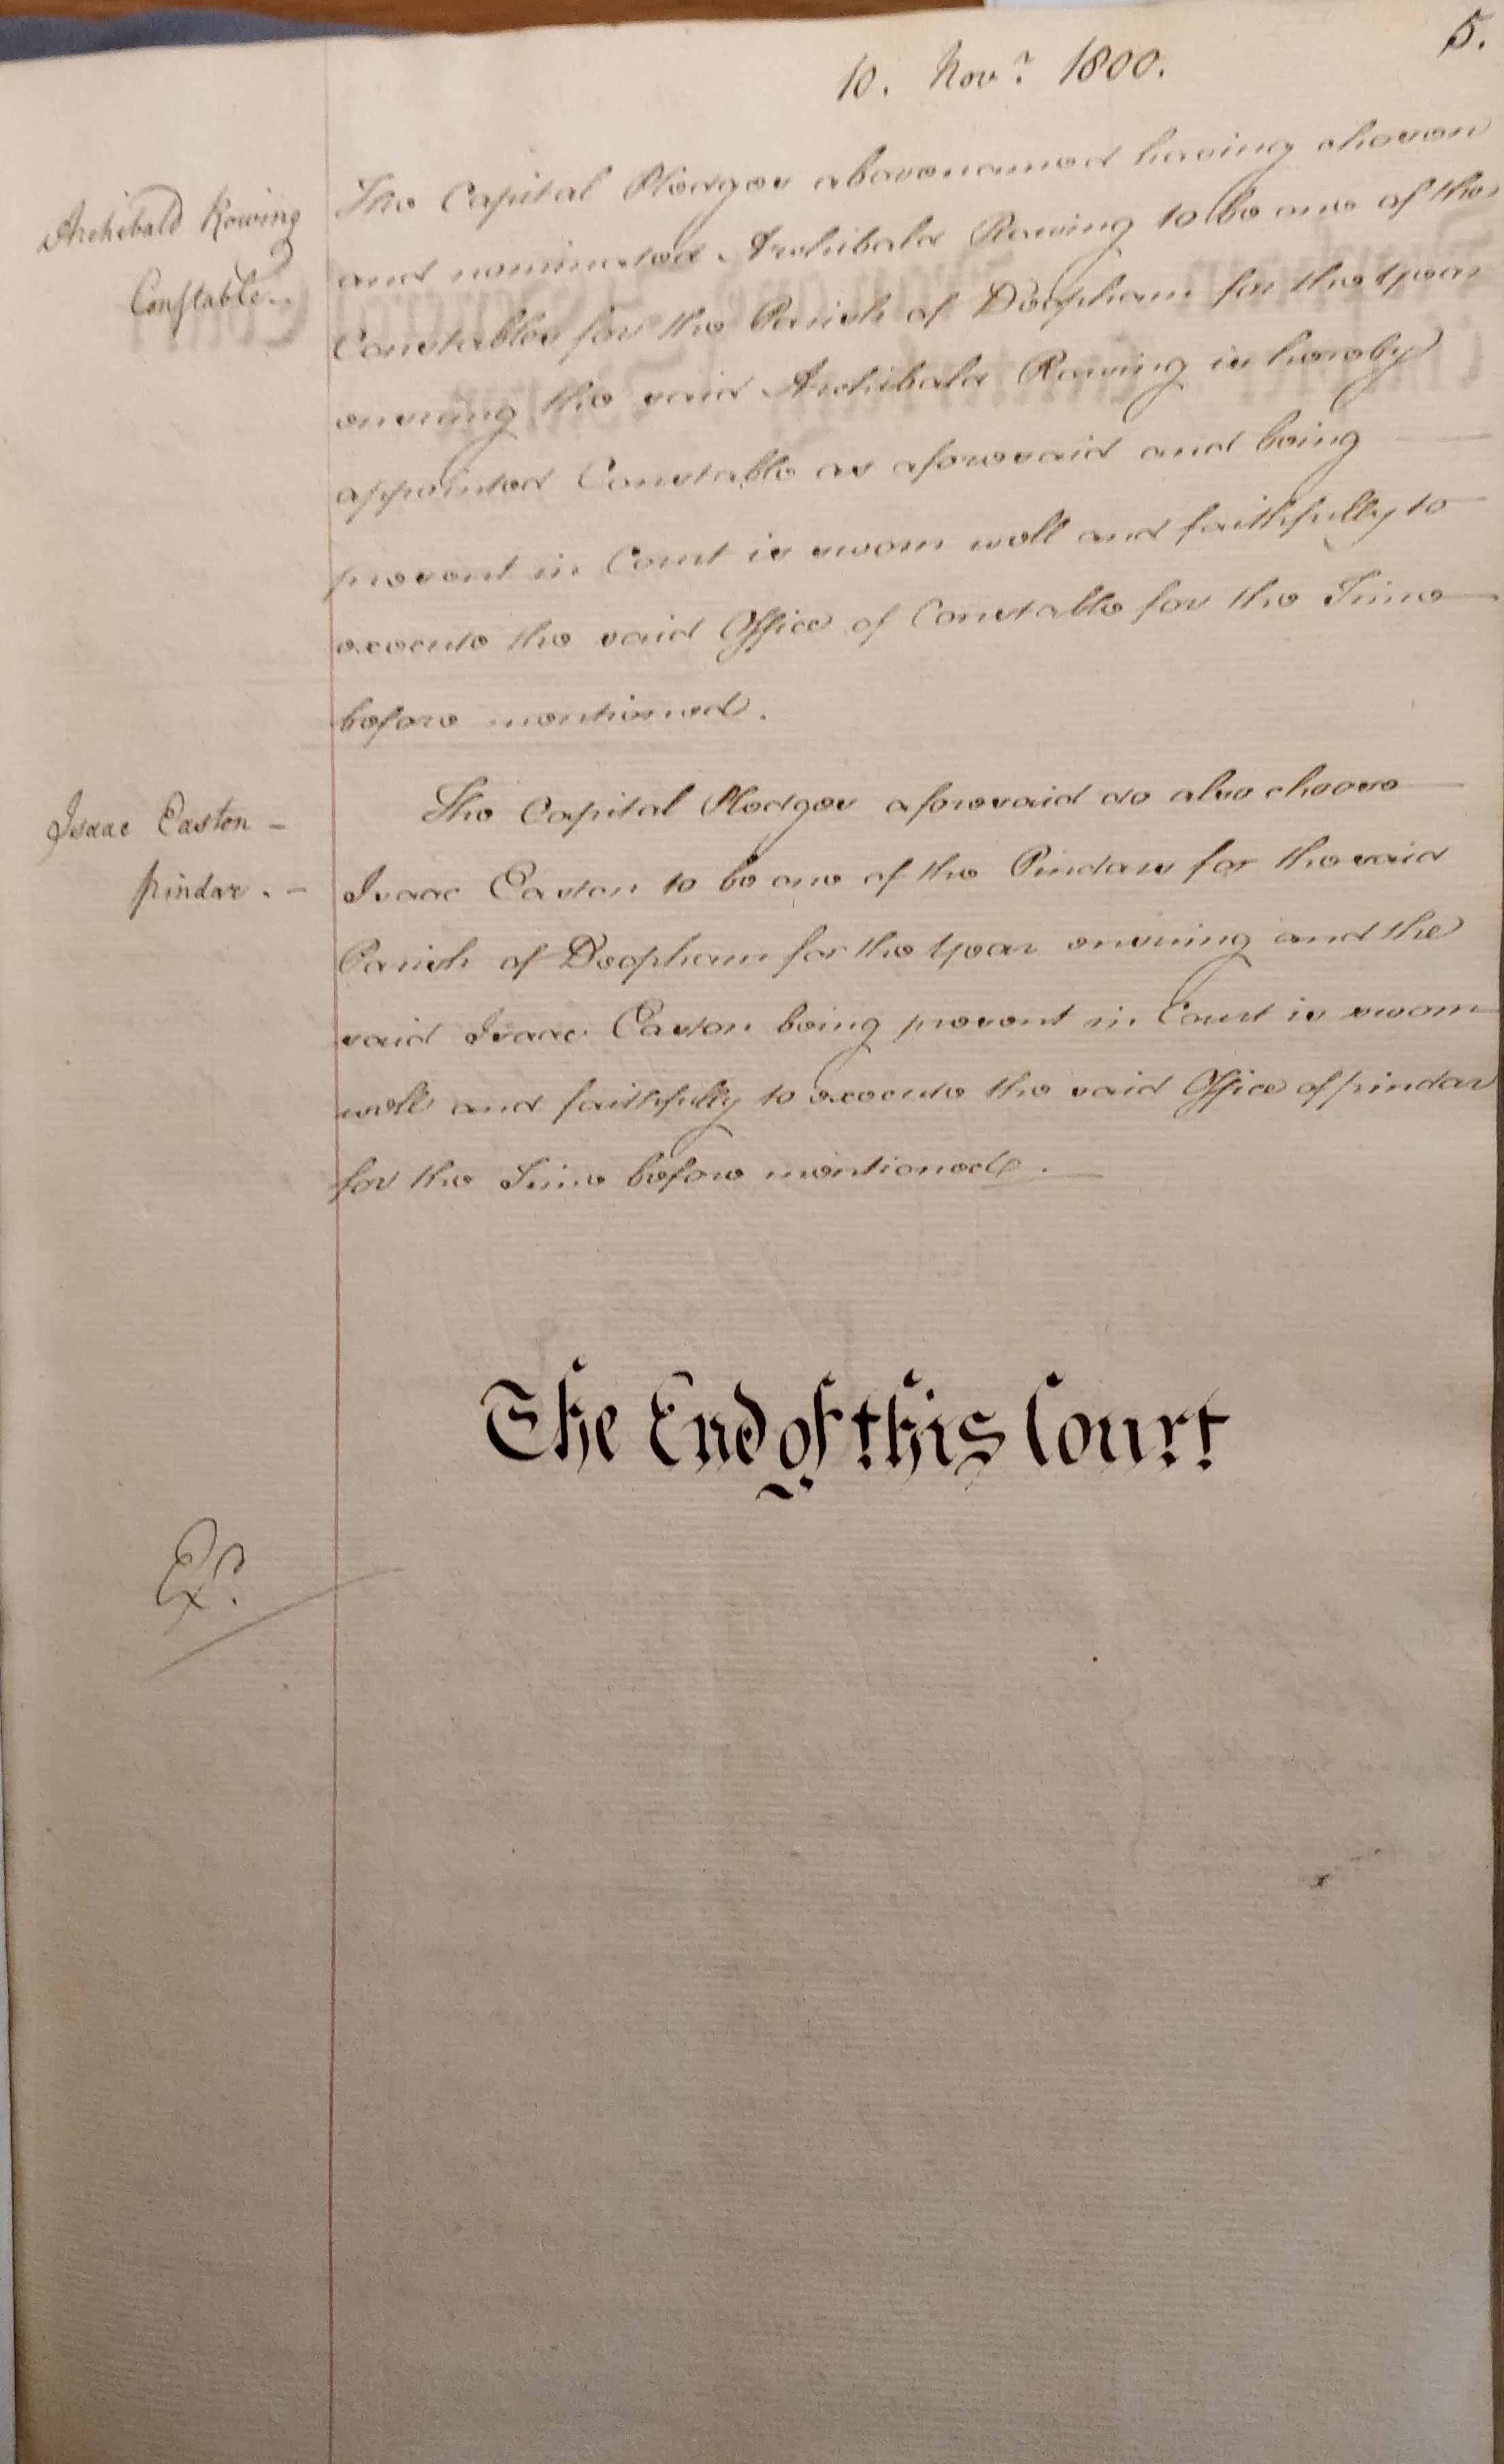 5.
10. Nov.r 1800.
Archibald Rowing
Constable..
The Capital Pledges abovenamed having chosen
and nominated Archibald Rowing to be one of the
Constables for the Parish of Deopham for the Year
ensuing the said Archibald Rowing is hereby
appointed Constable as aforesaid and being
present in Court is sworn well and faithfully to
execute the said Office of Constable for the Time
before mentioned.
Isaac Easton -
pindar. -
The Capital Pledges aforesaid do also choose
Isaac Easton to be one of the Pindars for the said
Parish of Deopham for the Year ensuing and the
said Isaac Easton being present in Court is sworn
well and faithfully to execute the said Office of pindar
for the Time before mentioned.
The End of this Court
Exd.